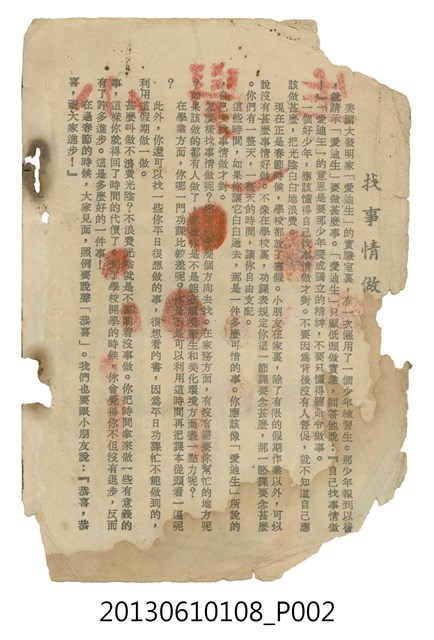 找事情做
美國大發明家「愛迪生」的實驗室裏，有一次僱用了一個少年練習生。那少年報到以後
，就請示「愛迪生」要做甚麼事。「愛迪生」只顧低頭做實驗，回答他說：『自己找事情做
！』「愛迪生」的意思是要那少年養成獨立的精神，不要只懂得聽命令做事。
一個好少年，應該懂得自己找事情做才對。不要因為背後沒有人督促，就不知道自己應
該做甚麼，把光陰白白地浪費。
現在正是春節時候，學校都放了寒假。小朋友在家裏，除了有限的假期作業以外，可以
說沒有甚麼事情好做。不像在學校裏，功課表規定你這一節課要念甚麼，那一節課要念甚麼
。你們有一整天，一整天的時間，讓你自由支配。
這些時間，如果你讓它白白過去，那是一件多麼可惜的事。你應該像「愛迪生」所說的
自己去找事情做才對。
怎麼樣找事情做呢？幾個方向去找。在家務方面，有沒有需要你幫忙的地方呢
？如果該做的都有人做了，是不是能在環境衛生和美化環境方面盡一點力呢？
在學業方面，你哪一門功課比較差呢？你是不是可以利用這時間再把課本從頭看一遍呢
？
此外，你還可以找一些你平日很想做的事，很想看的書，因為平日功課忙不能做到的，
利用這假期做一做。
甚麼叫做不浪費光陰？不浪費光陰就是不要閒着沒事做。你把時間拿來做一些有意義的
事，這樣你就得回了時間的代價了。到了學校開學的時候，你會覺得你不但沒有退步，反而
有了許多進步。這是多麼好的一件事！
在過春節的時候，大家見面，照例要說聲「恭喜」。我們也要跟小朋友說：『恭喜，恭
喜，祝大家進步！』
20130610108_P002